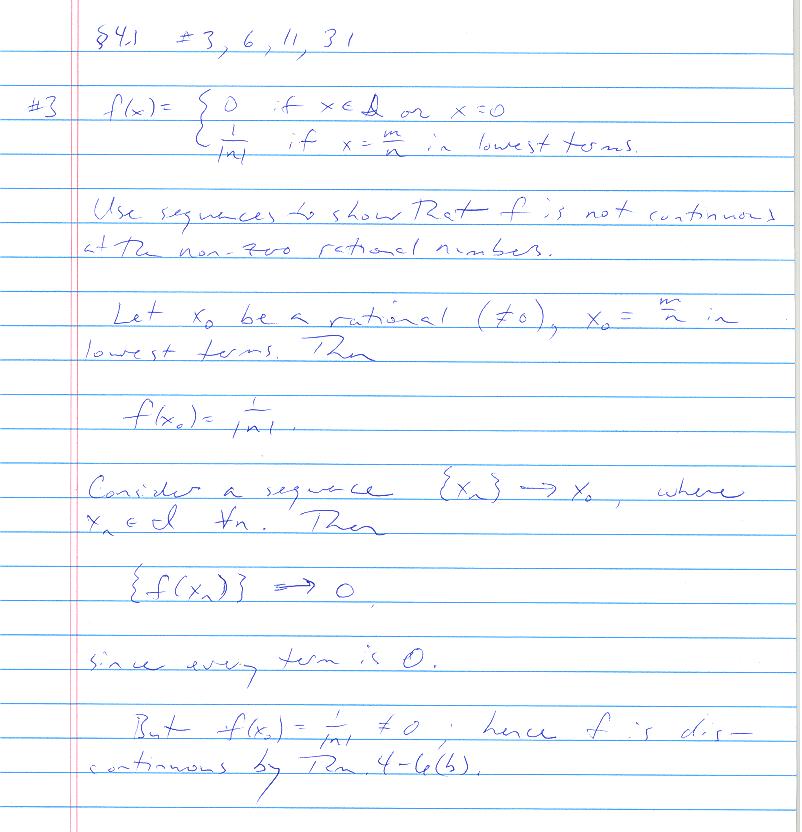 §4.1 #3, 6, 11, 31
#3 f(x) = { 0 if x ∈ 𝕀 or x = 0
1/|n| if x = m/n in lowest terms.
Use sequences to show that f is not continuous
at the non-zero rational numbers.
Let x₀ be a rational (≠0), x₀ = m/n in
lowest terms. Then
f(x₀) = 1/|n|.
Consider a sequence {xₙ} → x₀, where
xₙ ∈ 𝕀 ∀n. Then
{f(xₙ)} → 0,
since every term is 0.
But f(x₀) = 1/|n| ≠ 0; hence f is dis-
continuous by Thm. 4-6(b).